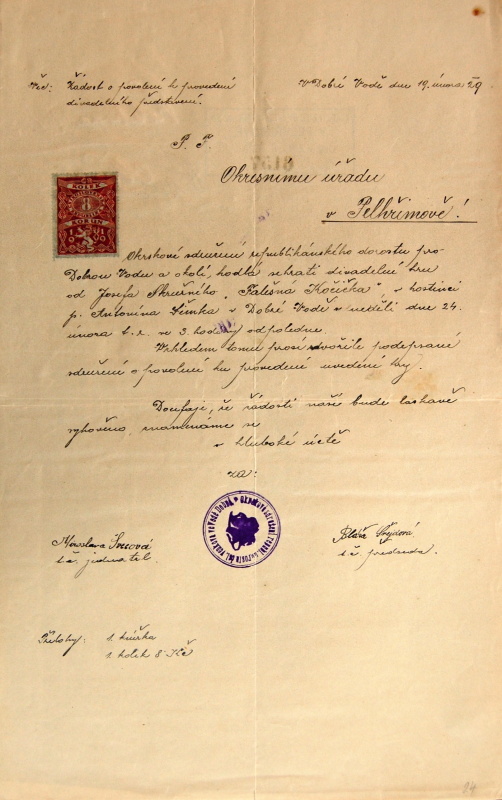 Věc: Žádost o povolení k provedení
divadelního představení.
V Dobré Vodě dne 19. února 29
P. T.
Okresnímu úřadu
v Pelhřimově!
KOLEK
8
KORUN
Okrskové sdružení republikánského dorostu pro
Dobrou Vodu a okolí, hodlá sehrati divadelní hru
od Josefa Skružného „Falešná Kočička" v hostinci
p. Antonína v Dobré Vodě v neděli dne 24.
února t. r. ve 3. hodin odpoledne.
Vzhledem tomu prosí uctivě podepsané
sdružení o povolení ku provedení uvedení hry.
Doufaje, že žádosti naší bude laskavě
vyhověno, znamenáme se
v hluboké úctě
za:
Miroslava
t. č. jednatel.
Blaža
t. č. předseda.
Přílohy: 1 knížka
1 kolek 8 Kč